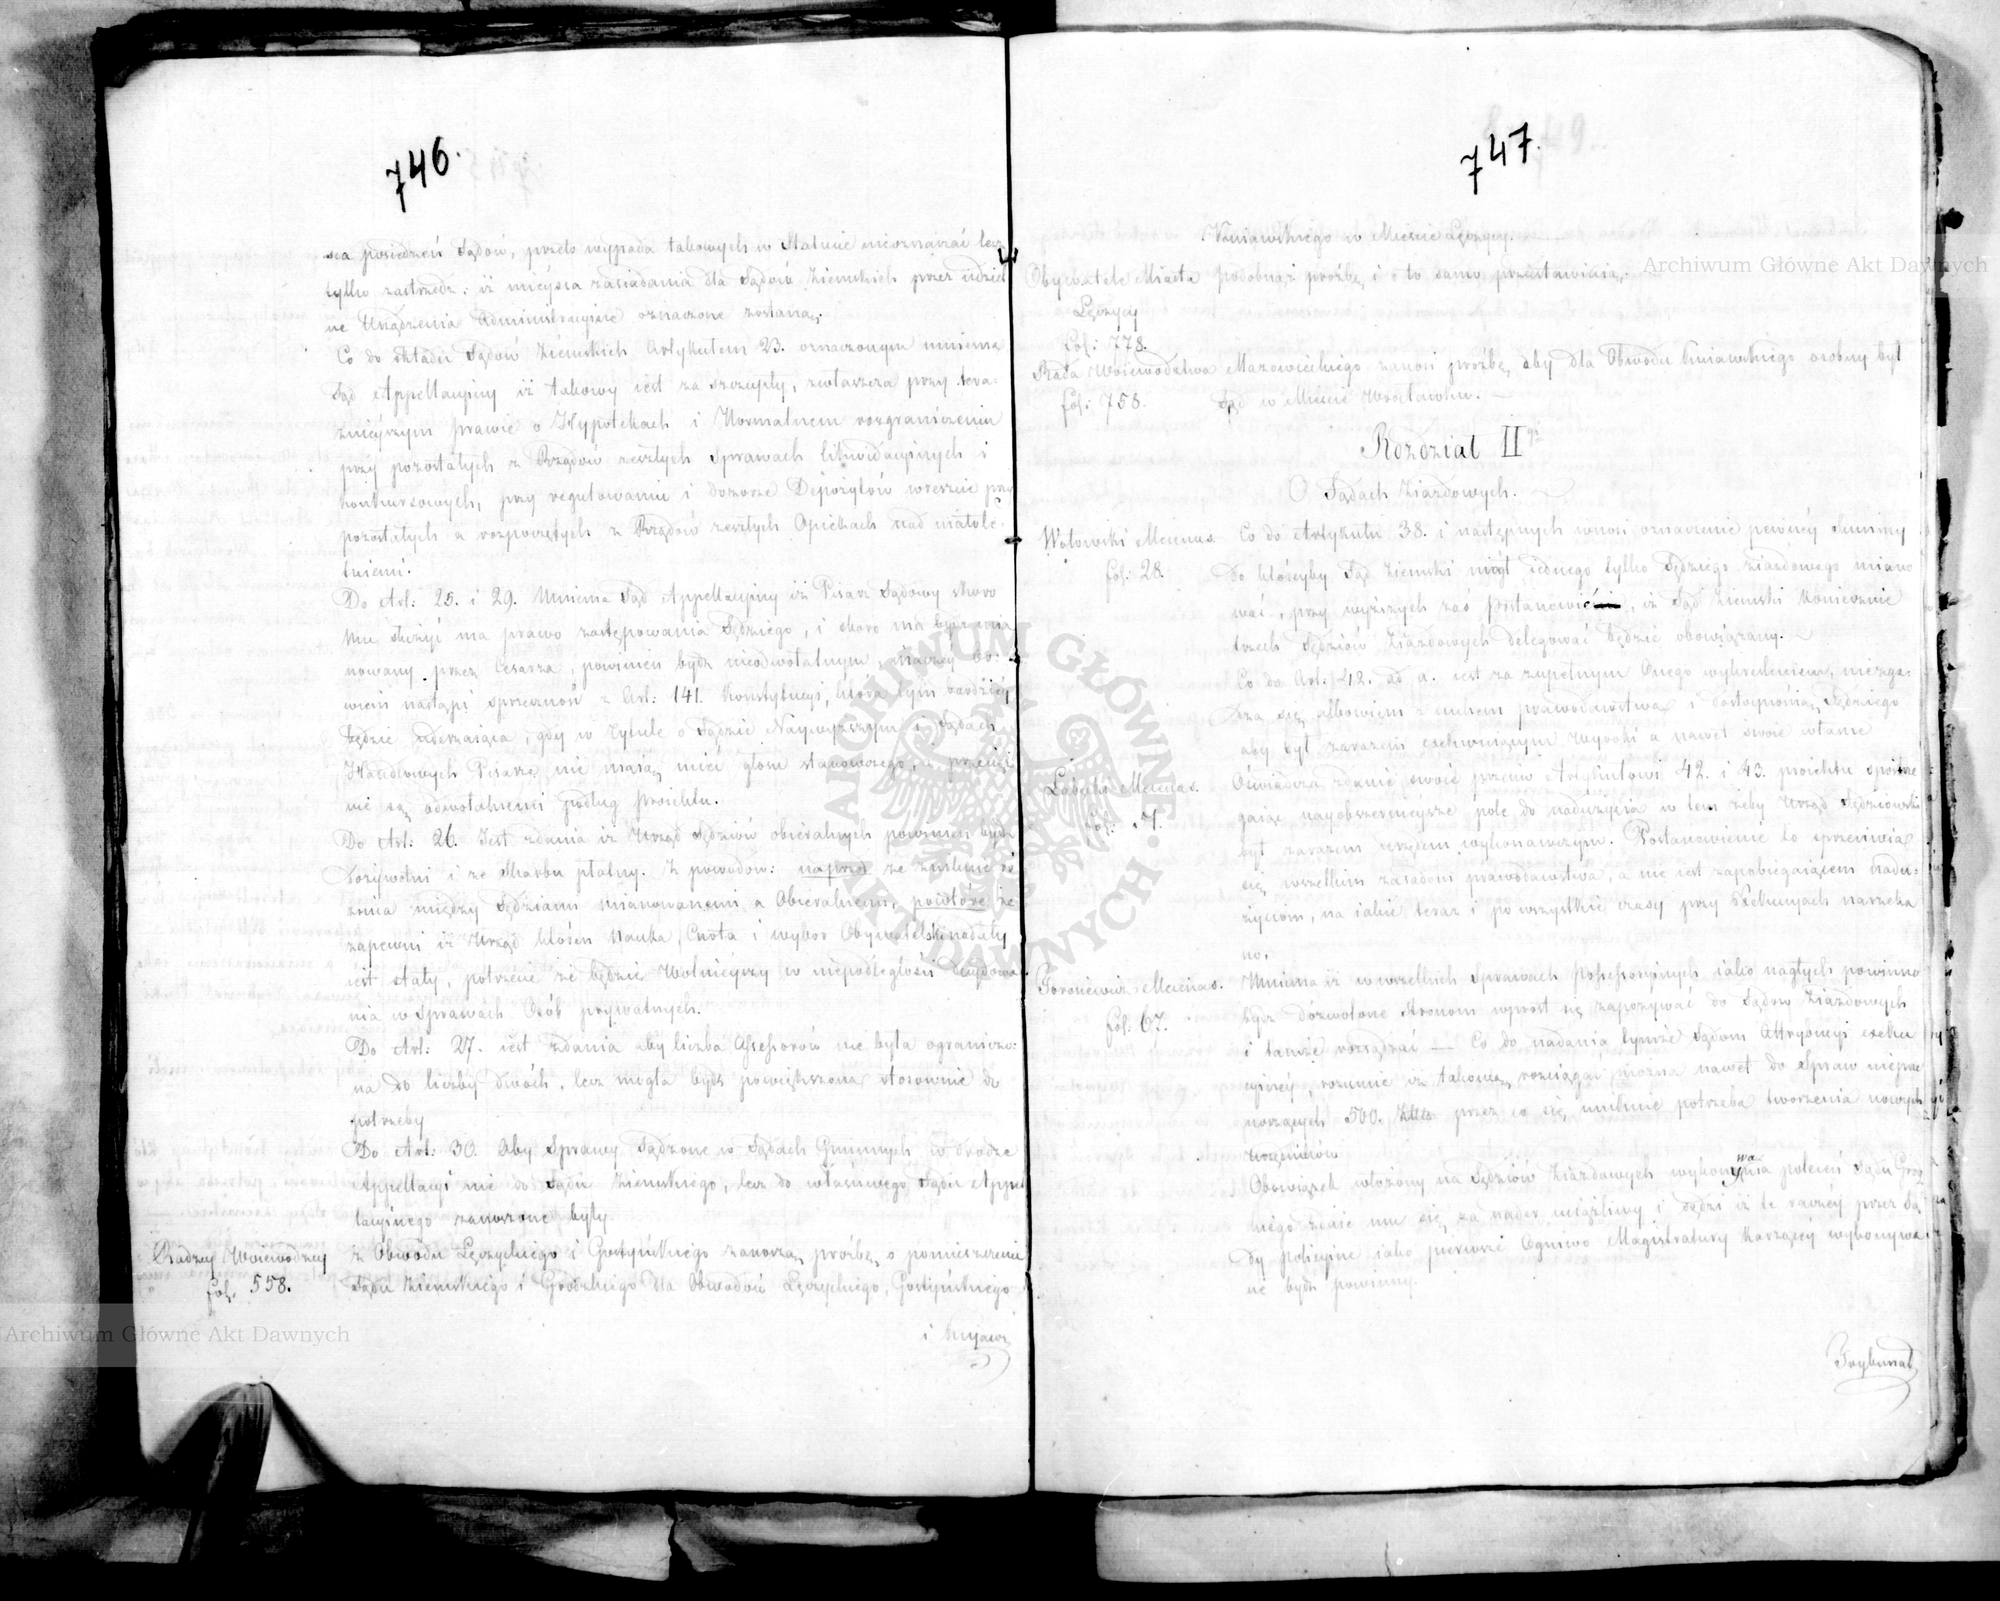 746.
sca posiedzeń Sądów, przeto wypada takowych w Statucie nieoznaczać lecz
tylko zastrzedz: iż mieysca zasiadania dla Sądów Ziemskich przez udziel
ne Urządzenia Administracyine oznaczone zostaną.
Co do składu Sądów Ziemskich Artykułem 23. oznaczonym mniema
Sąd Appellacyiny iż takowy iest za szczupły, zwłaszcza przy tera:
źnieyszym prawie o Hypotekach i Normalnem rozgraniczeniu
przy pozostałych z Rządów zeszłych Sprawach likwidacyinych i
konkursowych, przy regulowaniu i dozorze Depozytów wreszcie przy
pozostałych a rozpoczętych z Rządów zeszłych Opiekach nad małole:
tniemi.
Do Art: 25. i 29. Mniema Sąd Appellacyiny iż Pisarz Sądowy skoro
Mu służyć ma prawo zastępowania Sędziego, i skoro ma bydź mia
nowany przez Cesarza, powinien bydź nieodwołalnym, inaczey bo:
wiem nastąpi sprzeczność z Art: 141. Konstytucyi, która tym bardziey
będzie uderzaiąca, gdy w Tytule o Sądzie Naywyższym i Sądach
Handlowych Pisarze nie maią mieć głosu stanowczego, a przecież
nie są odwołalnemi podług Proiektu.
Do Art: 26. Jest zdania iż Urząd Sędziów obieralnych powinien bydź
dożywotni i ze Skarbu płatny. Z powodów: naprzód że zniknie ró
żnica między Sędziami mianowanemi a Obieralnemi, powtóre że
zapewni iż Urząd któren Nauka, Cnota i wybor Obywatelski nadały
iest stały, potrzecie że będzie Wolnieyszy w niepodległości decydowa
nia w Sprawach Osób prywatnych.
Do Art: 27. iest zdania aby liczba Assessorów nie była ogranicza:
na do liczby dwóch, lecz mogła bydź powiększona stosownie do
potrzeby
Do Art: 30. Aby Sprawy Sądzone w Sądach Gminnych w drodze
Appellacyi nie do Sądu Ziemskiego, lecz do właściwego Sądu Appel
lacyinego zanoszone były
Radzcy Woiewodzcy
fol. 558.
z Obwodu Łęczyckiego i Gostyńskiego zanoszą proźbę o pomieszczenie
Sądu Ziemskiego i Grodzkiego dla Obwodów Łęczyckiego, Gostyńskiego
i Kujaws
747.
Kuiawskiego w Mieście Łęczycy.
Obywatele Miasta
Łęczycy
fol: 778.
podobnąż proźbę i o to samo przedstawiaią.
Rada Woiewodztwa Mazowieckiego zanosi proźbę aby dla Obwodu Kuiawskiego osobny był
fol: 758.
Sąd w Mieście Wrocławku.
Rozdział II gi
O Sądach Ziazdowych.
Wołowski Mecenas.
fol: 28.
Co do Artykułu 38. i następnych wnosi oznaczenie pewney Summy
do któreyby Sąd Ziemski mógł iednego tylko Sędziego ziazdowego miano
wać, przy wyższych zaś Postanowić, iż Sąd Ziemski Koniecznie
trzech Sędziów Ziazdowych delegować będzie obowiązany.
Co do Art: 42. ad a. iest za zupełnym Onego wykreśleniem, niezga
dza się albowiem z duchem prawodawstwa i dostoynością Sędziego
aby był zarazem exekwuiącym Wyroki a nawet swoie własne
Łabęcki Mecenas.
Oświadcza zdanie swoie przeciw Artykułowi 42. i 43. proiektu spostrze
gaiąc nayobszernieysze pole do nadużycia w tem żeby Urząd Sędziowski
był zarazem urzędem wykonawczym. Postanowienie to sprzeciwia
się wszelkim zasadom prawodawstwa, a nie iest zapobiegaiącem Nadu:
życiom, na iakie teraz i po wszystkie czasy przy Exekucyach narzeka
no.
Toroniewicz Mecenas.
fol: 67.
Mniema iż w wszelkich Sprawach Possessoryinych iako nagłych powinno
bydź dozwolone Stronom wprost się zapozywać do Sądów Ziazdowych
i tamże rozsądzać — Co do nadania tymże Sądom Attrybucyi exeku
cyiney, rozumie iż takową rozciągać można nawet do Spraw nieprze
noszących 500. Złł. przez co się uniknie potrzeba tworzenia nowych
Urzędników
Obowiązek włożony na Sędziów Ziazdowych wykonywania poleceń Sądu Grodz
kiego zdaie mu się za nader uciążliwy i sądzi iż te raczey przez Są
dy policyine iako pierwsze Ogniwo Magistratury karzącey wykonywa
ne bydź powinny.
Trybunał
Archiwum Główne Akt Dawnych
Archiwum Główne Akt Dawnych
ARCHIWUM GŁÓWNE AKT DAWNYCH